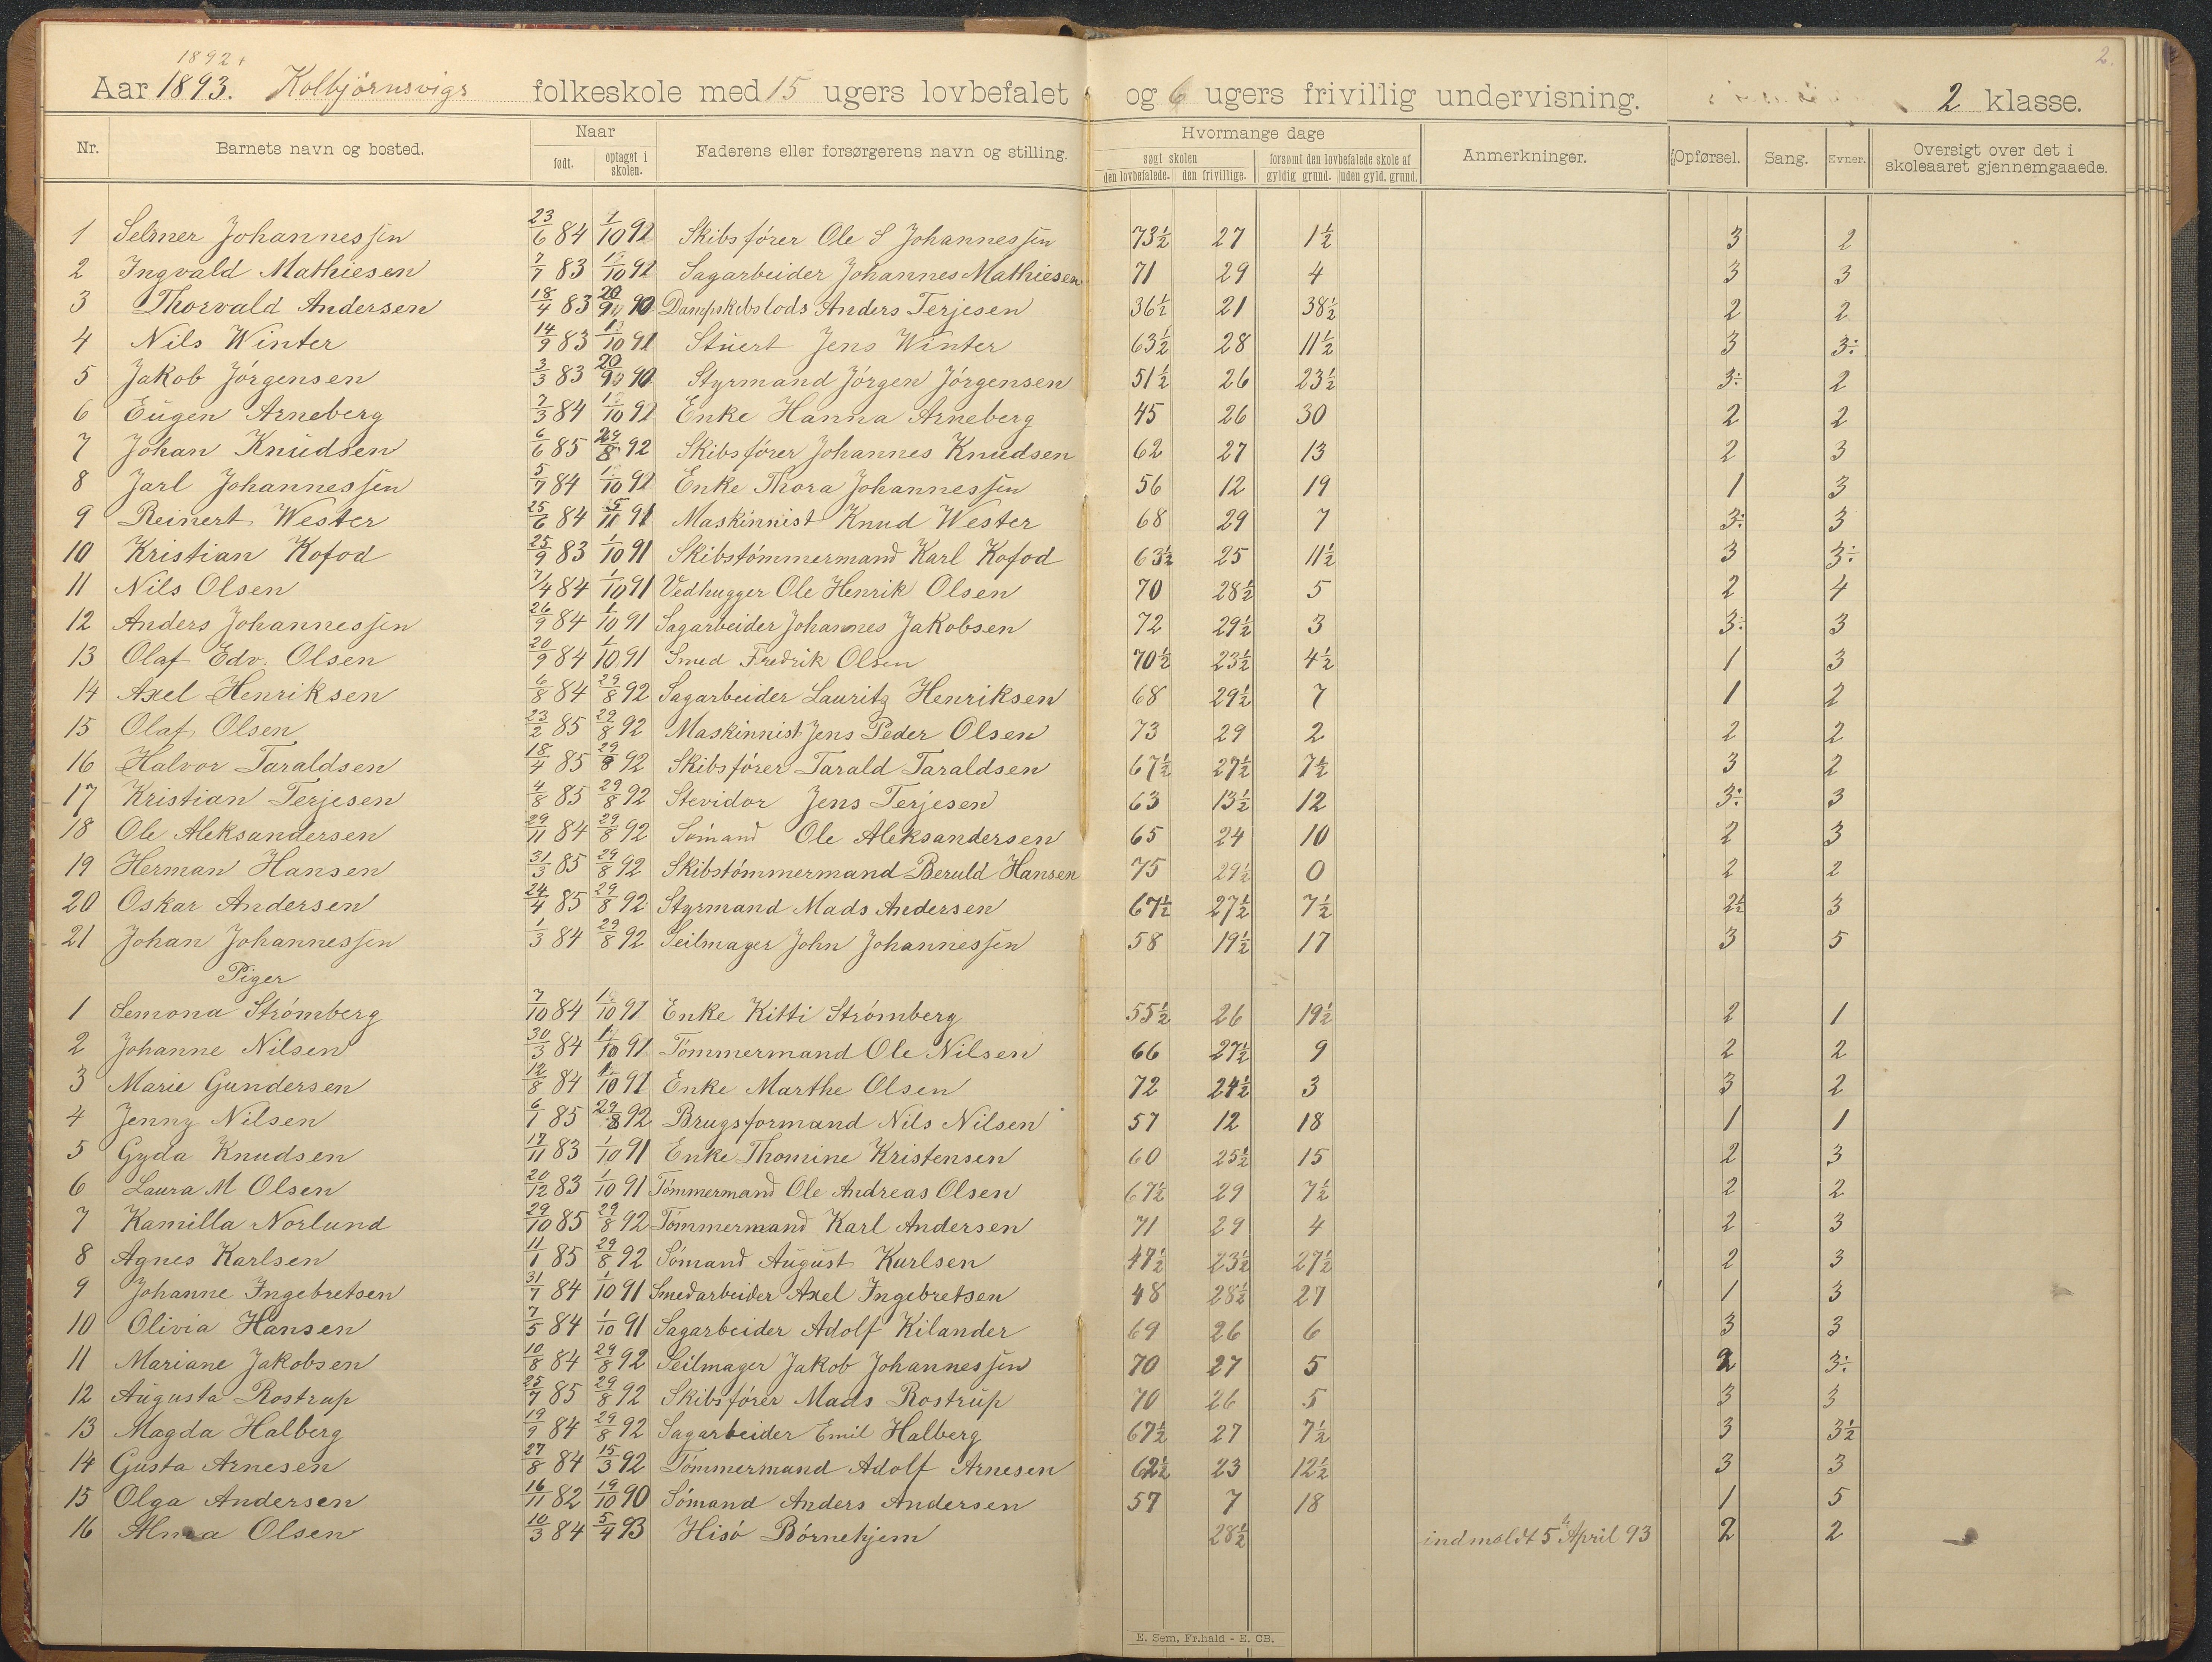 2.
1892+
Aar 1893. Kolbjørnsvigs folkeskole med 15 ugers lovbefalet og 6 ugers frivillig undervisning. 2 klasse.
Nr. Barnets navn og bosted. Naar Faderens eller forsørgerens navn og stilling. Hvormange dage Anmerkninger. Opførsel. Sang. Evner. Oversigt over det i skoleaaret gjennemgaaede.
født. optaget i skolen. søgt skolen forsømt den lovbefalede skole af
den lovbefalede. den frivillige. gyldig grund. uden gyld. grund.
1 Selmer Johannessen 23/6 84 1/10 92 Skibsfører Ole S Johannessen 73½ 27 1½ 3 2
2 Ingvald Mathiesen 7/7 83 1/10 92 Sagarbeider Johannes Mathiesen 71 29 4 3 3
3 Thorvald Andersen 18/4 83 20/9 90 Dampskibslods Anders Terjesen 36½ 21 38½ 2 2
4 Nils Winter 14/9 83 1/10 91 Stuert Jens Winter 63½ 28 11½ 3 3÷
5 Jakob Jørgensen 3/3 83 20/9 90 Styrmand Jørgen Jørgensen 51½ 26 23½ 3÷ 2
6 Eugen Arneberg 7/3 84 1/10 92 Enke Hanna Arneberg 45 26 30 2 2
7 Johan Knudsen 6/6 85 29/8 92 Skibsfører Johannes Knudsen 62 27 13 2 3
8 Jarl Johannessen 5/7 84 1/10 92 Enke Thora Johannessen 56 12 19 1 3
9 Reinert Wester 25/6 84 5/11 91 Maskinnist Knud Wester 68 29 7 3÷ 3
10 Kristian Kofod 25/9 83 1/10 91 Skibstømmermand Karl Kofod 63½ 25 11½ 3 3÷
11 Nils Olsen 7/4 84 1/10 91 Vedhugger Ole Henrik Olsen 70 28½ 5 2 4
12 Anders Johannessen 26/9 84 1/10 91 Sagarbeider Johannes Jakobsen 72 29½ 3 3÷ 3
13 Olaf Edv. Olsen 20/9 84 1/10 91 Smed Fredrik Olsen 70½ 23½ 4½ 1 3
14 Axel Henriksen 6/8 84 29/8 92 Sagarbeider Lauritz Henriksen 68 29½ 7 1 2
15 Olaf Olsen 23/2 85 29/8 92 Maskinnist Jens Peder Olsen 73 29 2 2 2
16 Halvor Taraldsen 18/4 85 29/8 92 Skibsfører Tarald Taraldsen 67½ 27½ 7½ 3 2
17 Kristian Terjesen 4/8 85 29/8 92 Stevidor Jens Terjesen 63 13½ 12 3÷ 3
18 Ole Aleksandersen 29/11 84 29/8 92 Sømand Ole Aleksandersen 65 24 10 2 3
19 Herman Hansen 31/3 85 29/8 92 Skibstømmermand Beruld Hansen 75 29½ 0 2 2
20 Oskar Andersen 24/4 85 29/8 92 Styrmand Mads Andersen 67½ 27½ 7½ 2½ 3
21 Johan Johannessen 1/3 84 29/8 92 Seilmager John Johannessen 58 19½ 17 3 5
Piger
1 Semona Strømberg 7/10 84 1/10 91 Enke Kitti Strømberg 55½ 26 19½ 2 1
2 Johanne Nilsen 30/3 84 1/10 91 Tømmermand Ole Nilsen 66 27½ 9 2 2
3 Marie Gundersen 12/8 84 1/10 91 Enke Marthe Olsen 72 24½ 3 3 2
4 Jenny Nilsen 6/1 85 29/8 92 Brugsformand Nils Nilsen 57 12 18 1 1
5 Gyda Knudsen 17/11 83 1/10 91 Enke Thomine Kristensen 60 25½ 15 2 3
6 Laura M Olsen 20/12 83 1/10 91 Tømmermand Ole Andreas Olsen 67½ 29 7½ 2 2
7 Kamilla Norlund 29/10 85 29/8 92 Tømmermand Karl Andersen 71 29 4 2 3
8 Agnes Karlsen 11/1 85 29/8 92 Sømand August Karlsen 47½ 23½ 27½ 2 3
9 Johanne Ingebretsen 31/7 84 1/10 91 Smedarbeider Axel Ingebretsen 48 28½ 27 1 3
10 Olivia Hansen 7/5 84 1/10 91 Sagarbeider Adolf Kilander 69 26 6 3 3
11 Mariane Jakobsen 10/8 84 29/8 92 Seilmager Jakob Johannessen 70 27 5 2 3÷
12 Augusta Rostrup 25/7 85 29/8 92 Skibsfører Mads Rostrup 70 26 5 3 3
13 Magda Halberg 19/9 84 29/8 92 Sagarbeider Emil Halberg 67½ 27 7½ 3 3½
14 Gusta Arnesen 27/8 84 15/3 92 Tømmermand Adolf Arnesen 62½ 23 12½ 3 3
15 Olga Andersen 16/11 82 19/10 90 Sømand Anders Andersen 57 7 18 1 5
16 Alma Olsen 10/3 84 5/4 93 Hisø Børnehjem 28½ indmeldt 5te April 93 2 2
E. Sem, Fr.hald - E. CB.